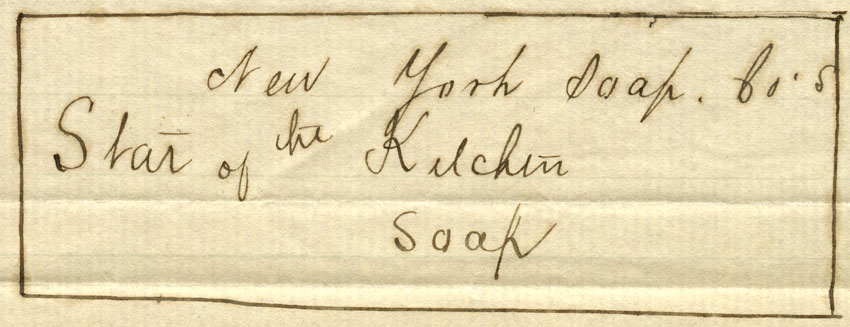 New York Soap. Co's
Star of the Kitchen
Soap